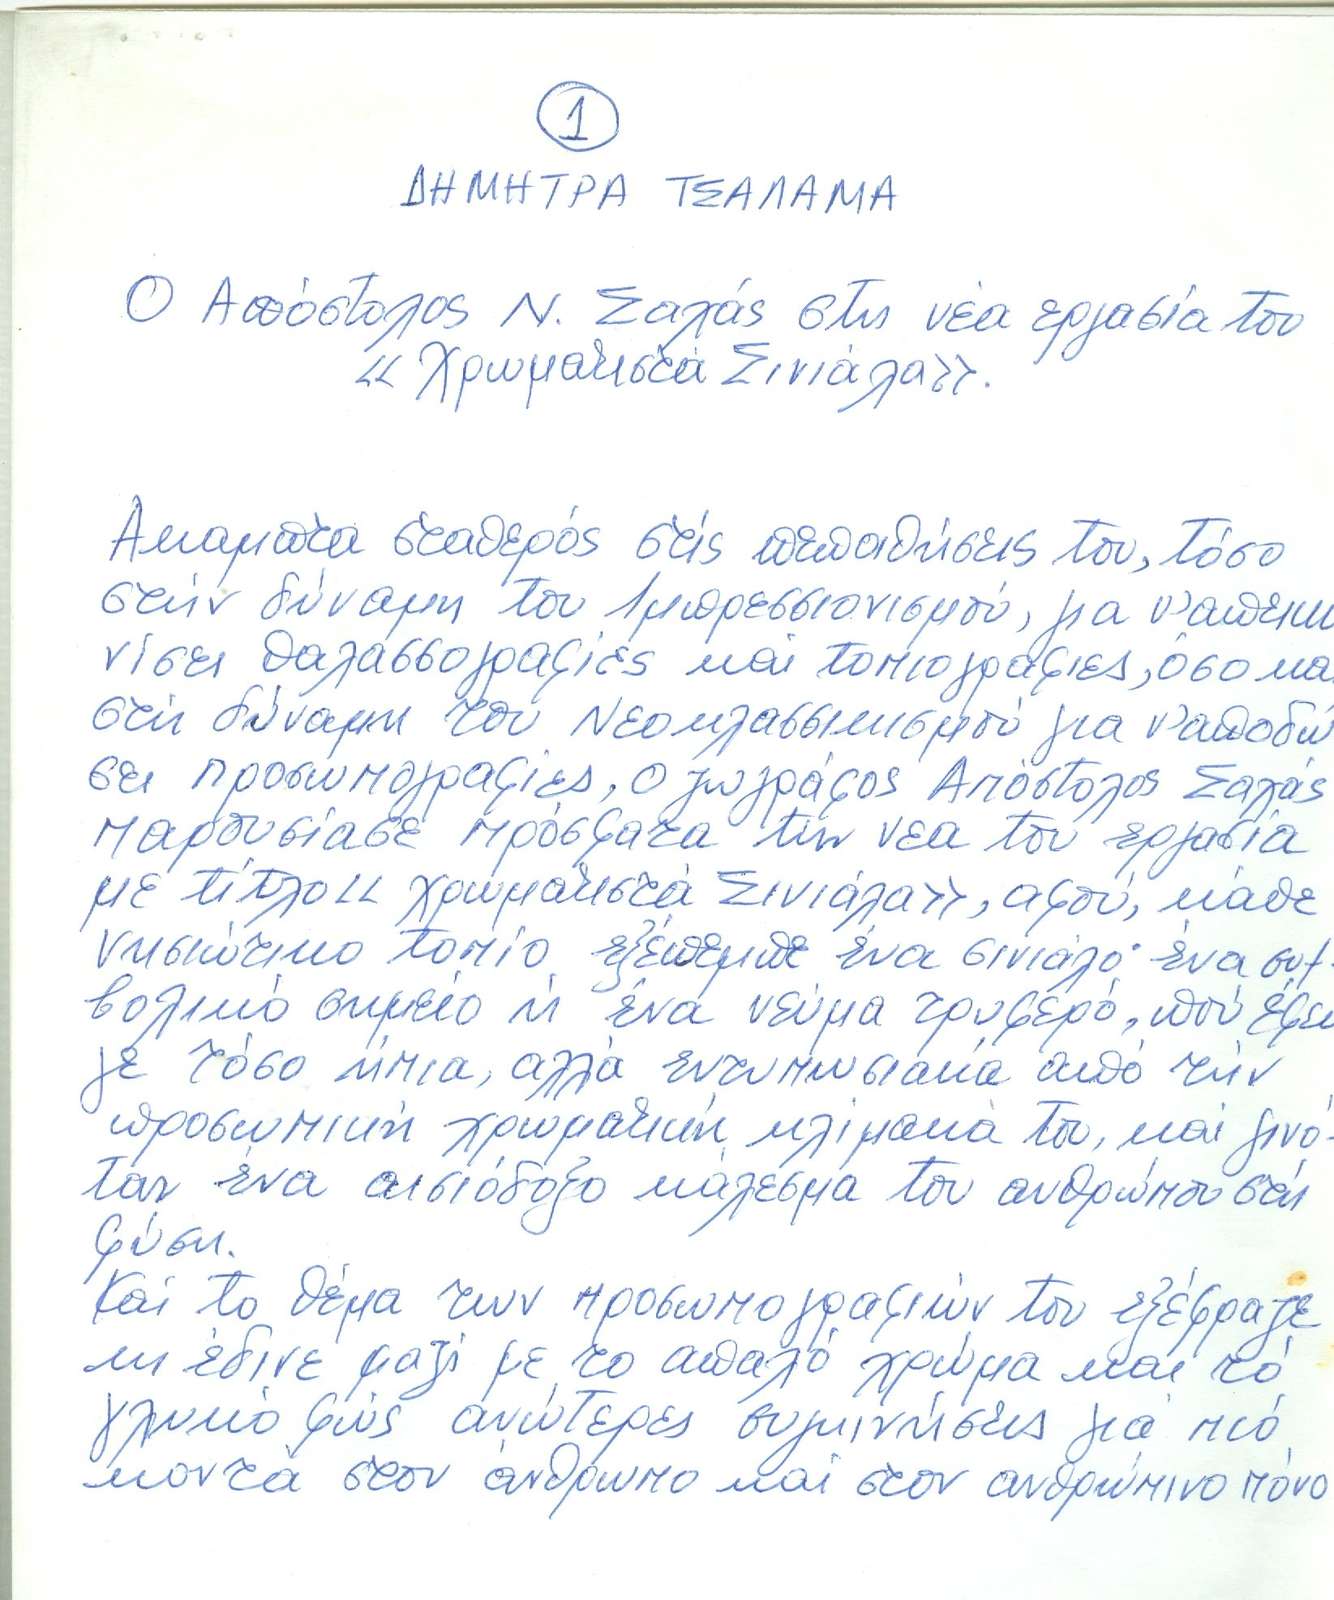 1
ΔΗΜΗΤΡΑ ΤΣΑΛΑΜΑ
Ο Απόστολος Ν. Σαλάς στη νέα εργασία του
<< Χρωματιστά Σινιάλα>>.
Άκαμπτα σταθερός στίς πεποιθήσεις του, τόσο
στήν δύναμη του Ιμπρεσσιονισμού, για ν'απεικο
νίσει θαλασσογραφίες και τοπιογραφίες, όσο και
στή δύναμη του Νεοκλασσικισμού για ν'αποδώ
σει προσωπογραφίες, ο ζωγράφος Απόστολος Σαλάς
παρουσίασε πρόσφατα τήν νέα του εργασία
με τίτλο<< Χρωματιστά Σινιάλα>>, αφού, κάθε
νησιώτικο τοπίο, εξέπεμπε ένα σινιάλο· ένα συμ-
βολικό σημείο ή ένα νεύμα τρυφερό, πού έφευ
γε τόσο ήπια, αλλά εντυπωσιακά από τήν
προσωπική χρωματική κλίμακά του, καί γινό-
ταν ένα αισιόδοξο κάλεσμα του ανθρώπου στή
φύση.
Καί το θέμα των προσωπογραφιών του εξέφραζε
κι έδινε μαζί με το απαλό χρώμα και τό
γλυκό φώς ανώτερες συγκινήσεις γιά πιό
κοντά στον άνθρωπο καί στον ανθρώπινο πόνο